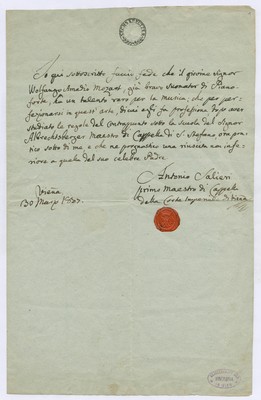 Io qui sottoscritto faccio fede che il giovine signor
Wolfgango Amadeo Mozart, già bravo suonator di Piano-
forte, ha un talento raro per la musica; che per per-
fezionarsi in quest'arte di cui egli fa professione dopo aver
studiato le regole del Contrapunto sotto la scuola del Signor
Albrechtsberger Maestro di Cappella di S. Stefano ora pra-
tico sotto di me e che ne pronostico una riuscita non infe-
riore a quella del suo celebre Padre.
Antonio Salieri
primo Maestro di Cappella
della Corte Imperiale di Vienna
Vienna
30 Marzo